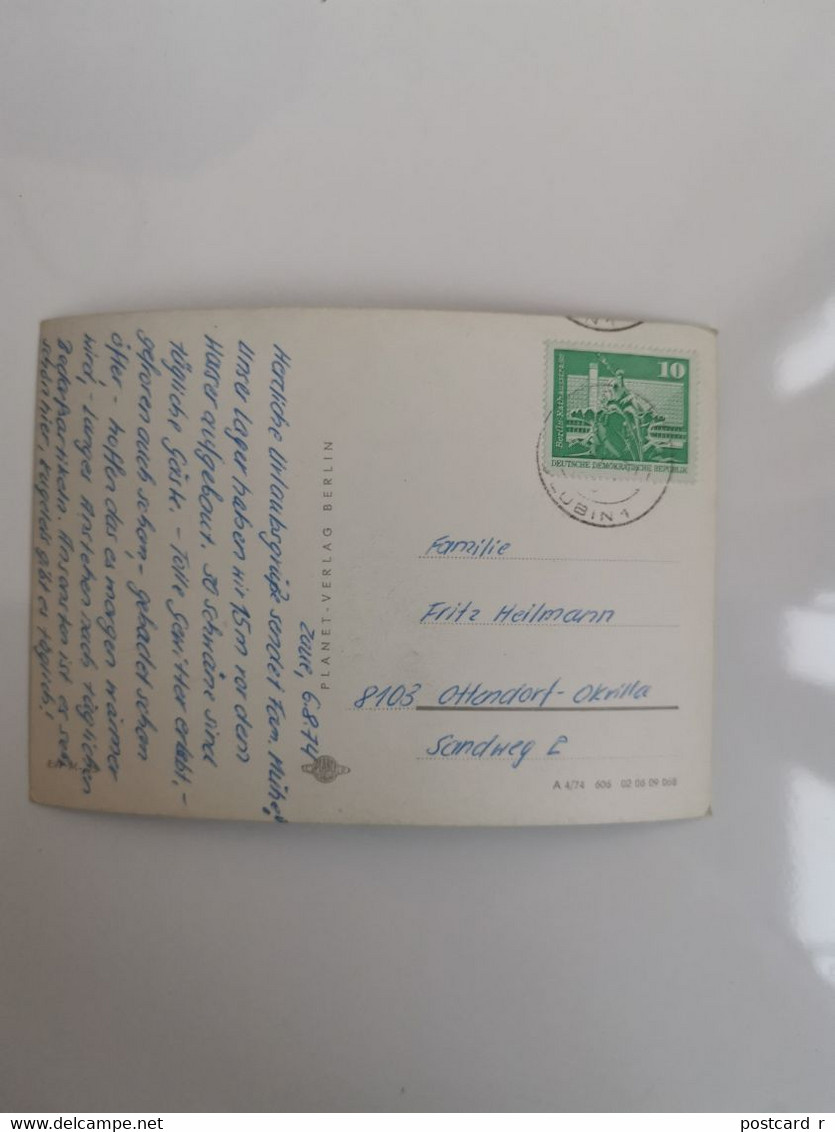 Zaue, 6.8.74
Herzliche Urlaubsgrüße sendet Fam.
Unser Lager haben wir 15 m vor dem
Wasser aufgebaut. So Schwäne sind
tägliche Gäste. - Tolle Gewitter erlebt, -
gefroren auch schon, - gebadet schon
öfter - hoffen das es morgen wärmer
wird, - Langes Anstehen nach täglichen
Bedarfsartikeln. Ansonsten ist es sehr
schön hier, gibt es täglich!
PLANET-VERLAG BERLIN
10
Berlin-Rathausstrasse
DEUTSCHE DEMOKRATISCHE REPUBLIK
LUBIN 1
Familie
Fritz Heilmann
8103 Ottendorf-Okrilla
Sandweg 2
A 4/74 606 02 06 09 068
postcard_r